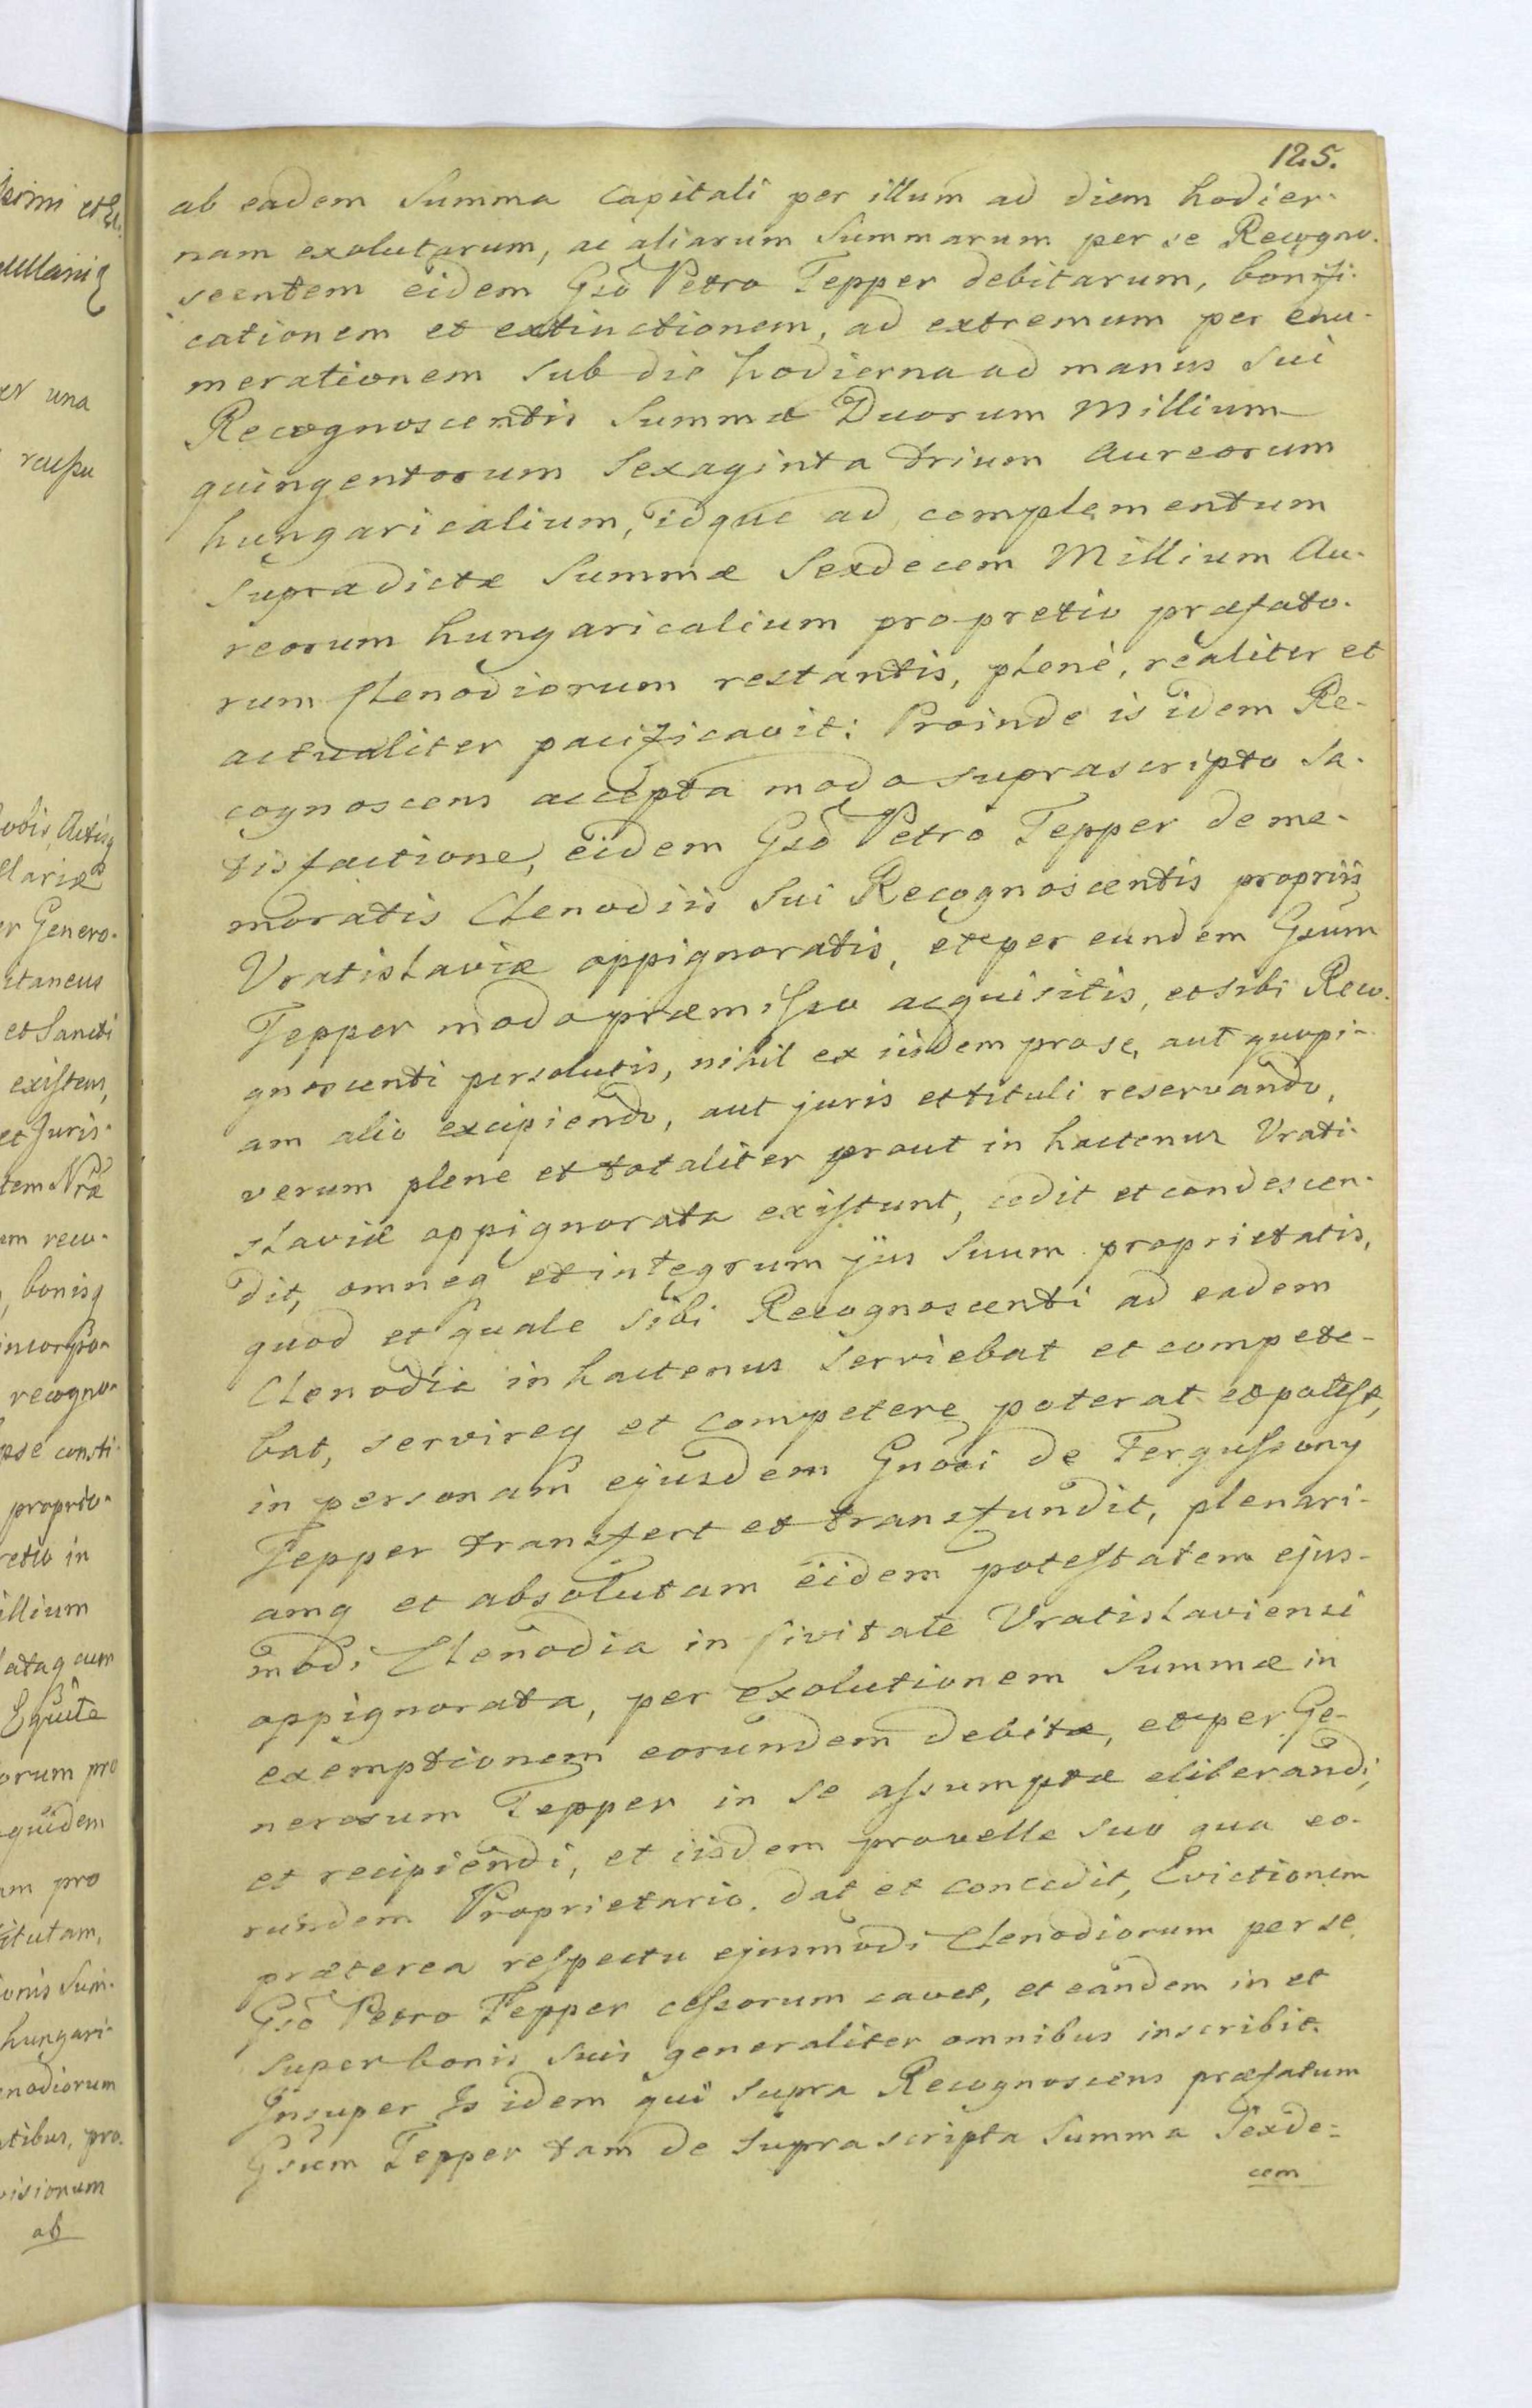 125.
ab eadem Summa Capitali per illum ad diem hodier-
nam exolutarum, ac aliarum Summarum per se Recogno-
scentem eidem Gsõ Petro Tepper debitarum, bonifi-
cationem et extinctionem, ad extremum per enu-
merationem sub die hodierna ad manus sui
Recognoscentis Summæ Duorum Millium
quingentorum Sexaginta trium Aureorum
hungaricalium, idque ad complementum
Supradictæ Summæ Sexdecem Millium Au-
reorum hungaricalium pro pretio præfato-
rum Clenodiorum restantis, plenè, realiter et
actualiter pacificavit: Proinde is idem Re-
cognoscens accepta modo suprascripto sa-
tisfactione, eidem Gsõ Petro Tepper de me-
moratis Clenodiis Sui Recognoscentis propriis
Vratislaviæ oppignoratis, et per eundem Gsum
Tepper modo præmisso acquisitis, et sibi Reco-
gnoscenti persolutis, nihil ex iisdem pro se, aut quopi-
am alio excipiendo, aut juris et tituli reservando,
verum plene et totaliter prout in hactenus Vrati-
slaviæ oppignorata existunt, cedit et condescen-
dit, omneq et integrum jus suum proprietatis,
quod et quale sibi Recognoscenti ad eadem
Clenodia in hactenus serviebat et compete-
bat, servireq et competere poterat et potest,
in personam ejusdem Gnõsi de Fergussony
Tepper transfert et transfundit, plenari-
amq et absolutam eidem potestatem ejus-
modi Clenodia in Civitate Vratislaviensi
oppignorata, per exolutionem Summæ in
exemptionem eorumdem debitæ, et per Ge-
nerosum Tepper in se assumptæ eliberandi,
et recipiendi, et iisdem pro velle suo qua eo-
rundem Proprietario, dat et concedit, Evictionem
præterea respectu ejusmodi Clenodiorum per se
Gsõ Petro Tepper cessorum cavet, et eandem in et
super bonis suis generaliter omnibus inscribit.
Insuper Is idem qui supra Recognoscens præfatum
Gsum Tepper tam de supra scripta Summa Sexde=
cem